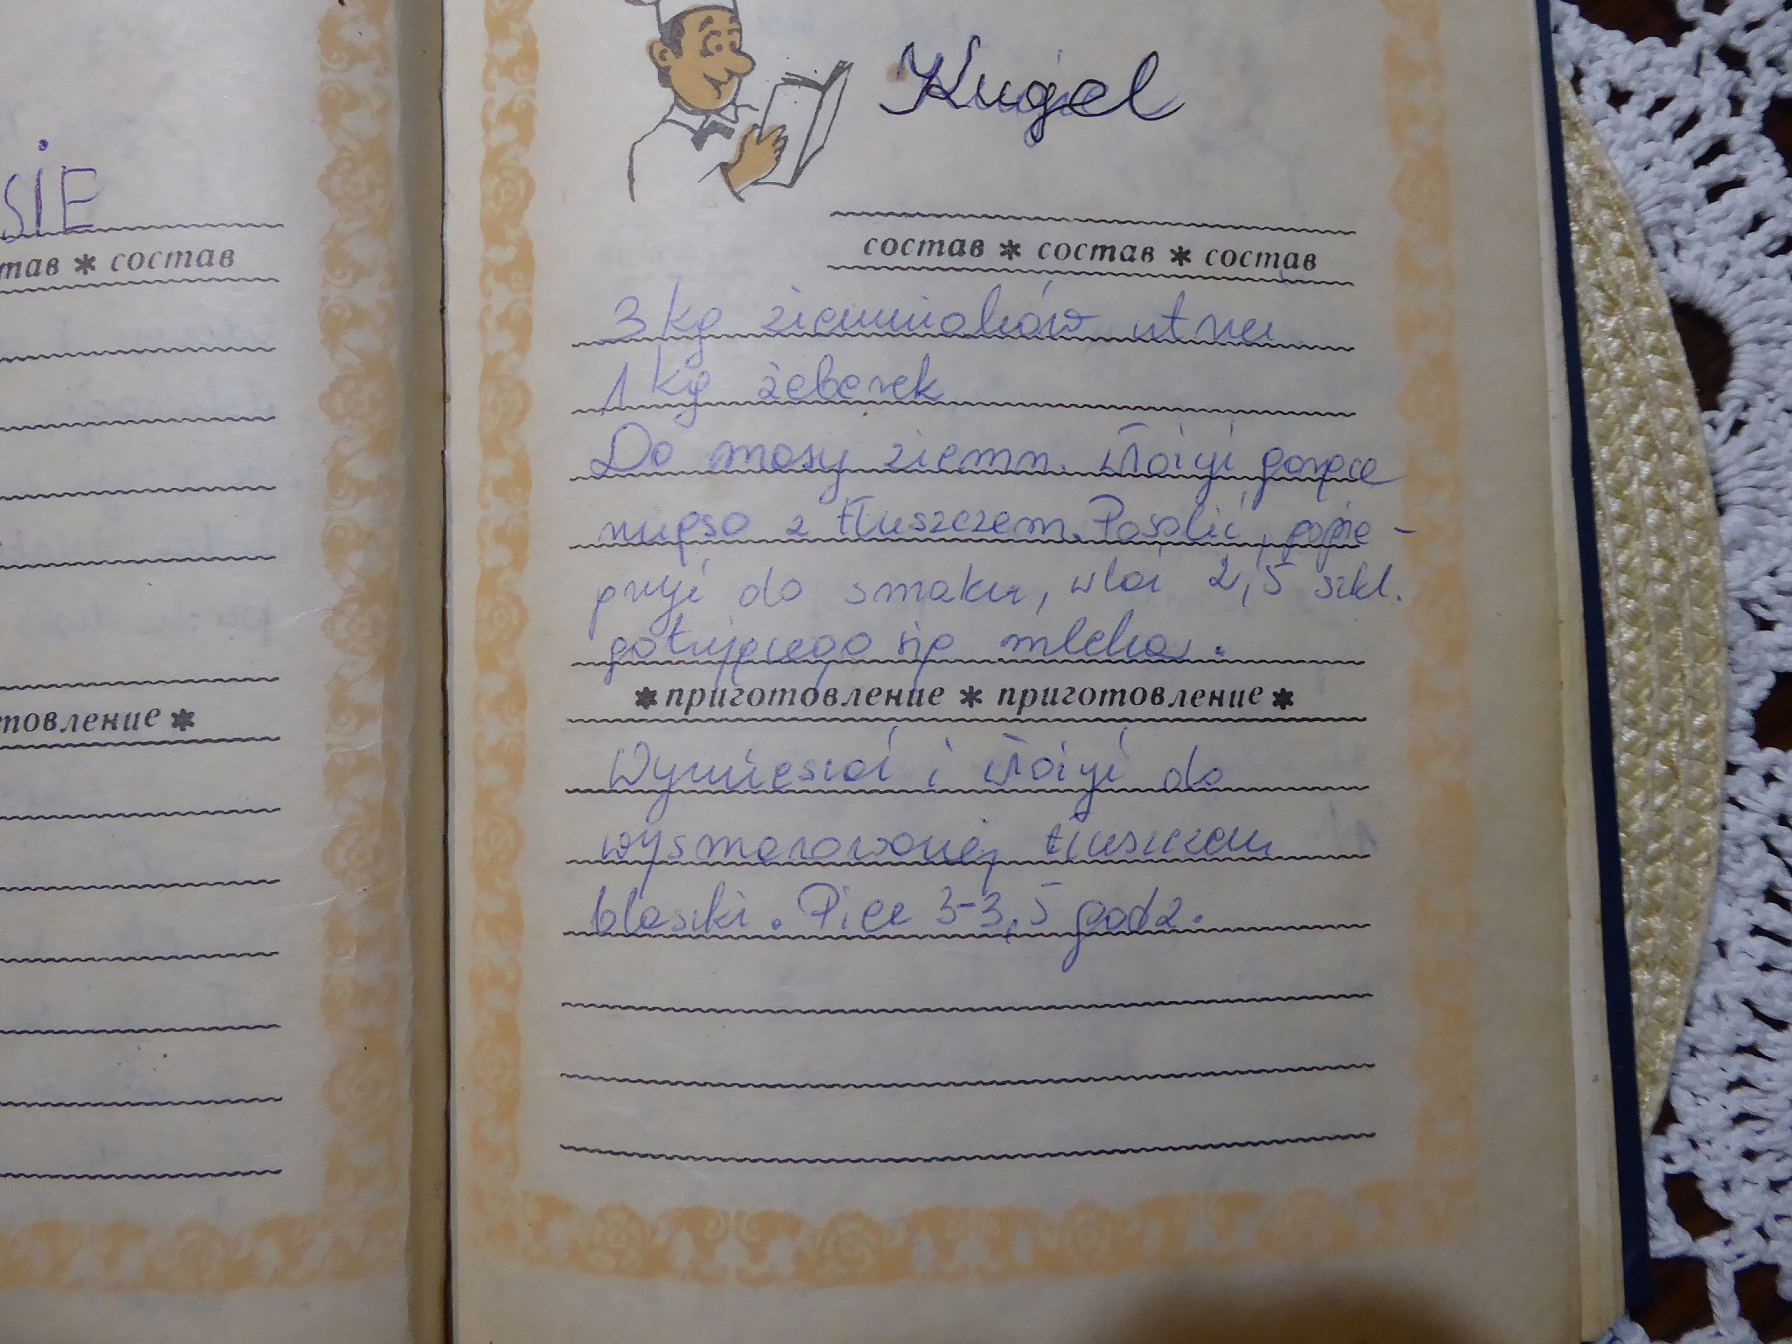 SIE
тав * состав
товление *
Kugel
состав * состав * состав
3 kg ziemniaków utrzeć
1 kg żeberek
Do masy ziemn. włożyć gorące
mięso z tłuszczem. Posolić, popie-
przyć do smaku, wlać 2,5 szkl.
gotującego się mleka.
* приготовление * приготовление *
Wymieszać i włożyć do
wysmarowanej tłuszczem
blaszki. Piec 3-3,5 godz.